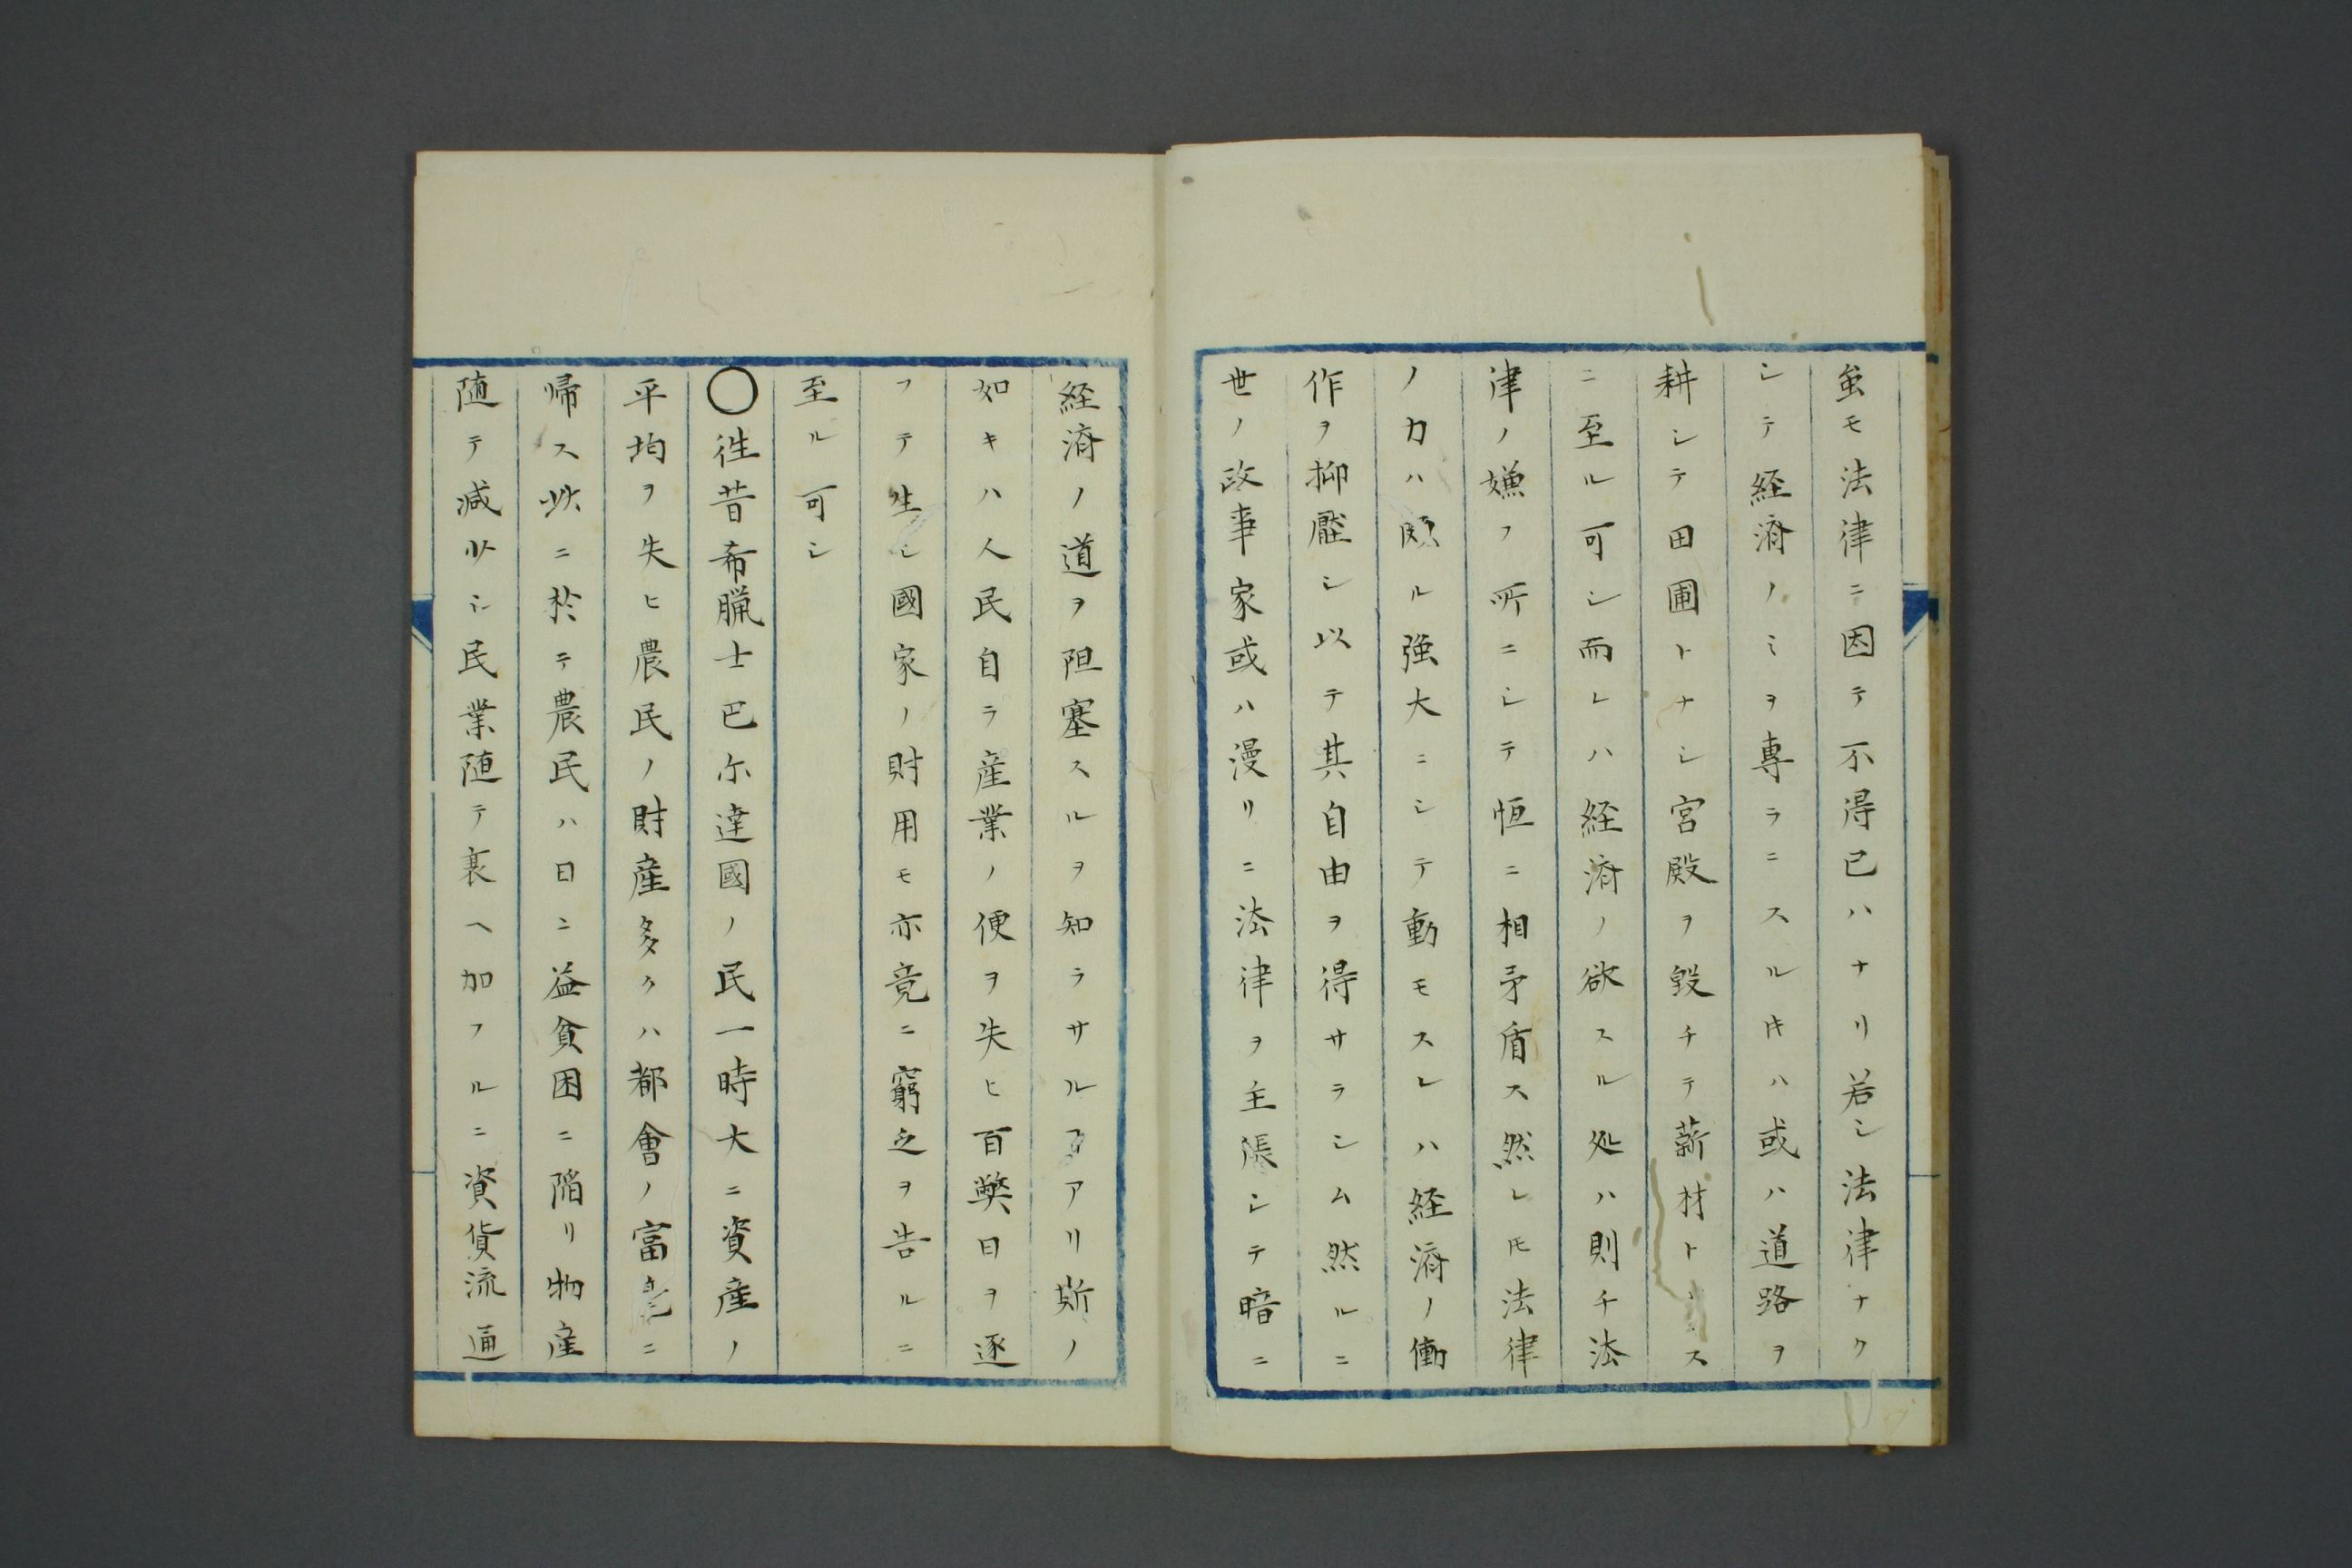 蚩モ法律ニ因テ不得已ハナリ若シ法律ナク
シテ経済ノミヲ專ラニスルキハ或ハ道路ヲ
耕シテ田圃トナシ宮殿ヲ毀チテ薪材トス
ニ至ル可シ而レハ経済ノ欲スル処ハ則チ法
律ノ嫌フ所ニシテ恒ニ相矛盾ス然レ𪜈法律
ノ力ハ頗ル強大ニシテ動モスレハ経済ノ働
作ヲ抑壓シ以テ其自由ヲ得サラシム然ルニ
世ノ政事家或ハ漫リニ法律ヲ主張シテ暗ニ
経済ノ道ヲ阻塞スルヲ知ラサルヿアリ斯ノ
如キハ人民自ラ産業ノ便ヲ失ヒ百弊日ヲ逐
フテ生シ國家ノ財用モ亦竟ニ窮乏ヲ告ルニ
至ル可シ
〇徃昔希臘士巴尓達國ノ民一時大ニ資産ノ
平均ヲ失ヒ農民ノ財産多クハ都會ノ富ニ
帰ス此ニ於テ農民ハ日ニ益貧困ニ陥リ物産
随テ減少シ民業随テ衰ヘ加フルニ資貨流通